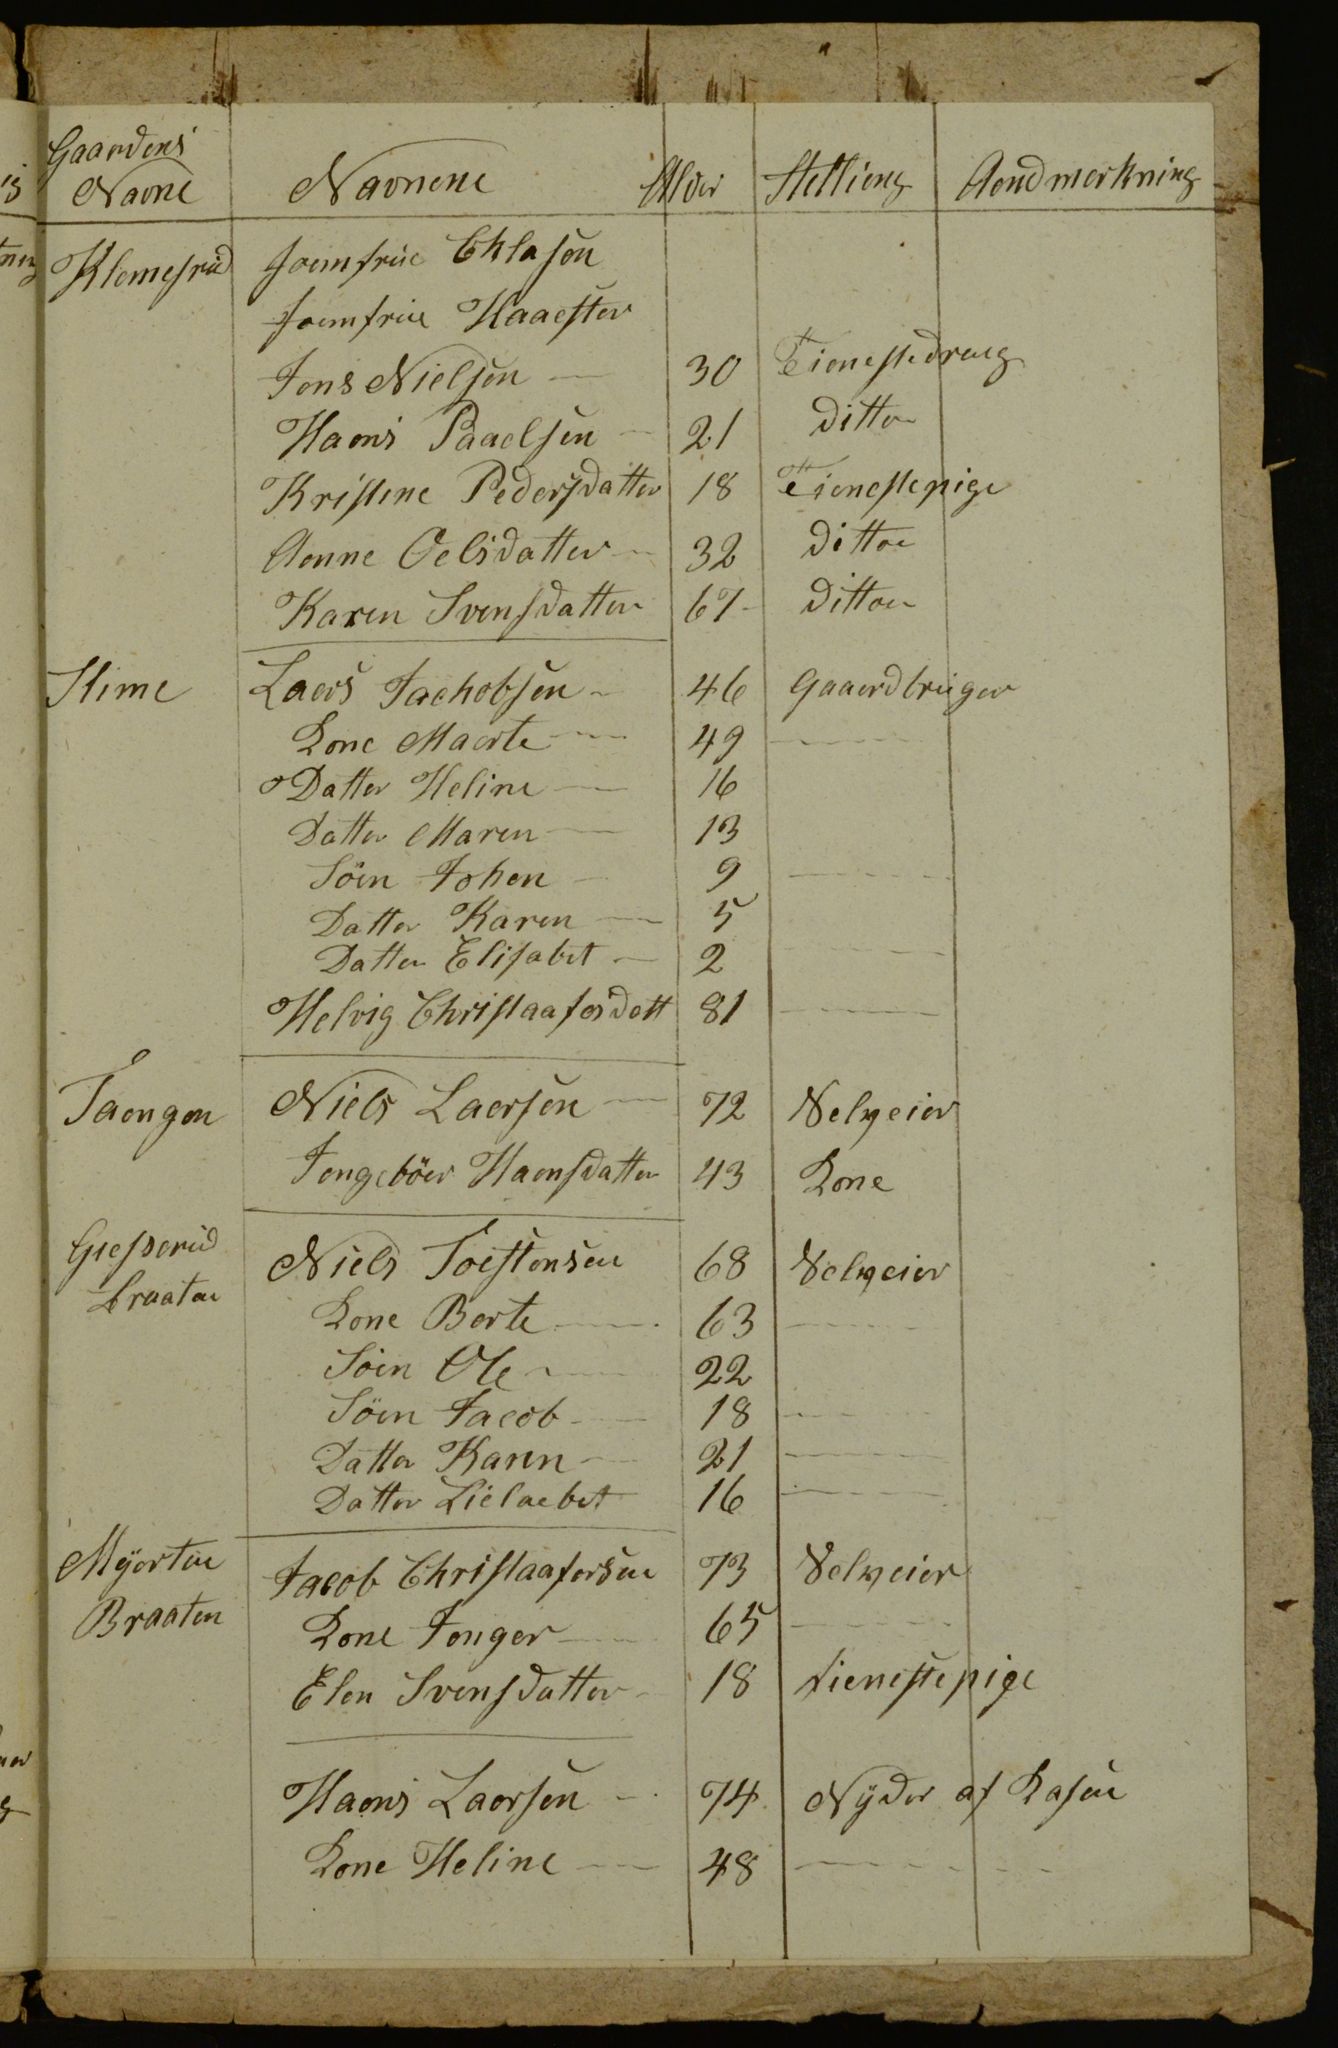 Gaardens Navne | Navnene | Alder | Stelling | Aendmerkning
Klemesrud | Jomfrue Chlasen
Jomfrue Kaaester
Jens Nielsen — 30 Tienestedreng
Haens Paaelsen — 21 ditto
Kristene Pedersdatter 18 Tienestepige
Aenne Oelsdatter — 32 ditto
Karen Svensdatter 67 ditto
Stime | Laers Jachobsen 46 Gaaerdbruger
Kone Maerte — 49 —
Datter Heline — 16
Datter Maren — 13
Söen Johen — 9 —
Datter Karen — 5
Datter Elisabet — 2 —
Helvig Christaafersdatt 81 —
Taengen | Niels Laersen — 72 Selveier
Jengeböer Haensdatter 43 Kone
Gieserud Braaten | Niels Toestensen 68 Selveier
Kone Berte — 63 —
Söen Ole — 22
Söen Jacob — 18 —
Datter Karen — 21 —
Datter Lielaebet 16 —
Myerten Braaten | Jacob Christaafersen 73 Selveier
Kone Jenger — 65 —
Elen Svensdatter — 18 tienestepige
Haens Laersen — 74 Nyder af Kasen
Kone Heline — 48 —